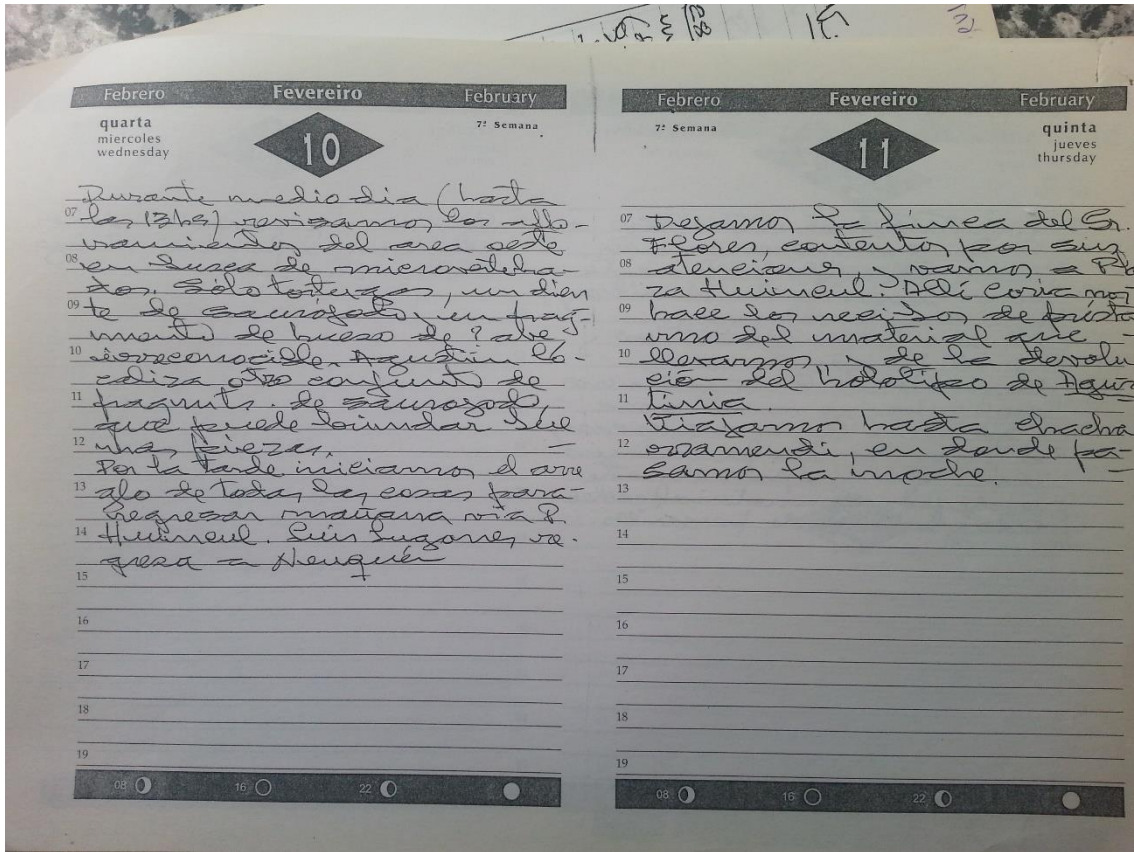 Febrero Fevereiro February
quarta
miercoles
wednesday
10
7ª Semana
Durante medio dia (hasta
07 las 13hs) revisamos los aflo-
ramientos del area oeste
08 en busca de microvertebra-
dos. Sólo tortugas, un dien
09 te de saurópodo, un frag-
mento de hueso de ? ave
10 irreconocible. Agustín lo-
caliza otro conjunto de
11 fragmts. de saurópodo,
que puede brindar bue
12 nas piezas.
Por la tarde iniciamos el arre
13 glo de todas las cosas para
regresar mañana vía P.
14 Huincul. Luis Lugones re-
gresa a Neuquén
15
16
17
18
19
08 16 22
Febrero Fevereiro February
7ª Semana
11
quinta
jueves
thursday
07 Dejamos la finca del Sr.
Flores, contentos por sus
08 atenciones, y vamos a Pla
za Huincul. Allí Coria nos
09 hace los recibos de présta
mo del material que
10 llevamos y de la devolu
ción del holotipo de Agus
11 tinia.
Viajamos hasta Chacha
12 rramendi, en donde pa-
samos la noche.
13
14
15
16
17
18
19
08 16 22